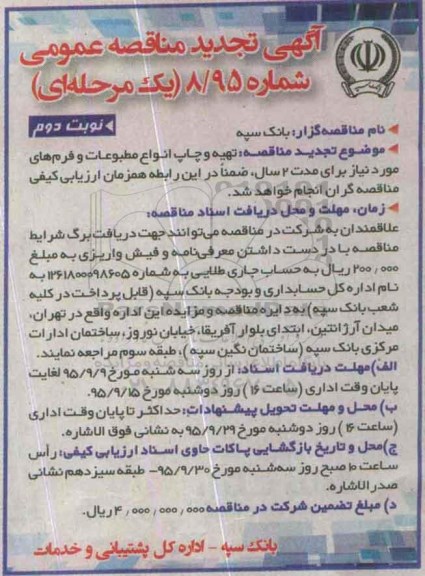 آگهی تجدید مناقصه عمومی
شماره ۸/۹۵ (یک مرحله‌ای)
نوبت دوم
نام مناقصه‌گزار: بانک سپه
موضوع تجدید مناقصه: تهیه و چاپ انواع مطبوعات و فرم‌های
مورد نیاز برای مدت ۲ سال، ضمناً در این رابطه همزمان ارزیابی کیفی
مناقصه گران انجام خواهد شد.
زمان، مهلت و محل دریافت اسناد مناقصه:
علاقمندان به شرکت در مناقصه می‌توانند جهت دریافت برگ شرایط
مناقصه با در دست داشتن معرفی‌نامه و فیش واریزی به مبلغ
۲۰۰,۰۰۰ ریال به حساب جاری طلایی به شماره ۱۲۶۱۸۰۰۰۹۸۶۰۵ به
نام اداره کل حسابداری و بودجه بانک سپه (قابل پرداخت در کلیه
شعب بانک سپه) به دایره مناقصه و مزایده این اداره واقع در تهران،
میدان آرژانتین، ابتدای بلوار آفریقا، خیابان نوروز، ساختمان ادارات
مرکزی بانک سپه (ساختمان نگین سپه)، طبقه سوم مراجعه نمایند.
الف) مهلت دریافت اسناد: از روز سه شنبه مورخ ۹۵/۹/۹ لغایت
پایان وقت اداری (ساعت ۱۶) روز دوشنبه مورخ ۹۵/۹/۱۵.
ب) محل و مهلت تحویل پیشنهادات: حداکثر تا پایان وقت اداری
(ساعت ۱۶) روز دوشنبه مورخ ۹۵/۹/۲۹ به نشانی فوق الاشاره.
ج) محل و تاریخ بازگشایی پاکات حاوی اسناد ارزیابی کیفی: رأس
ساعت ۱۰ صبح روز سه‌شنبه مورخ ۹۵/۹/۳۰– طبقه سیزدهم نشانی
صدرالاشاره.
د) مبلغ تضمین شرکت در مناقصه ۴,۰۰۰,۰۰۰,۰۰۰ ریال.
بانک سپه – اداره کل پشتیبانی و خدمات